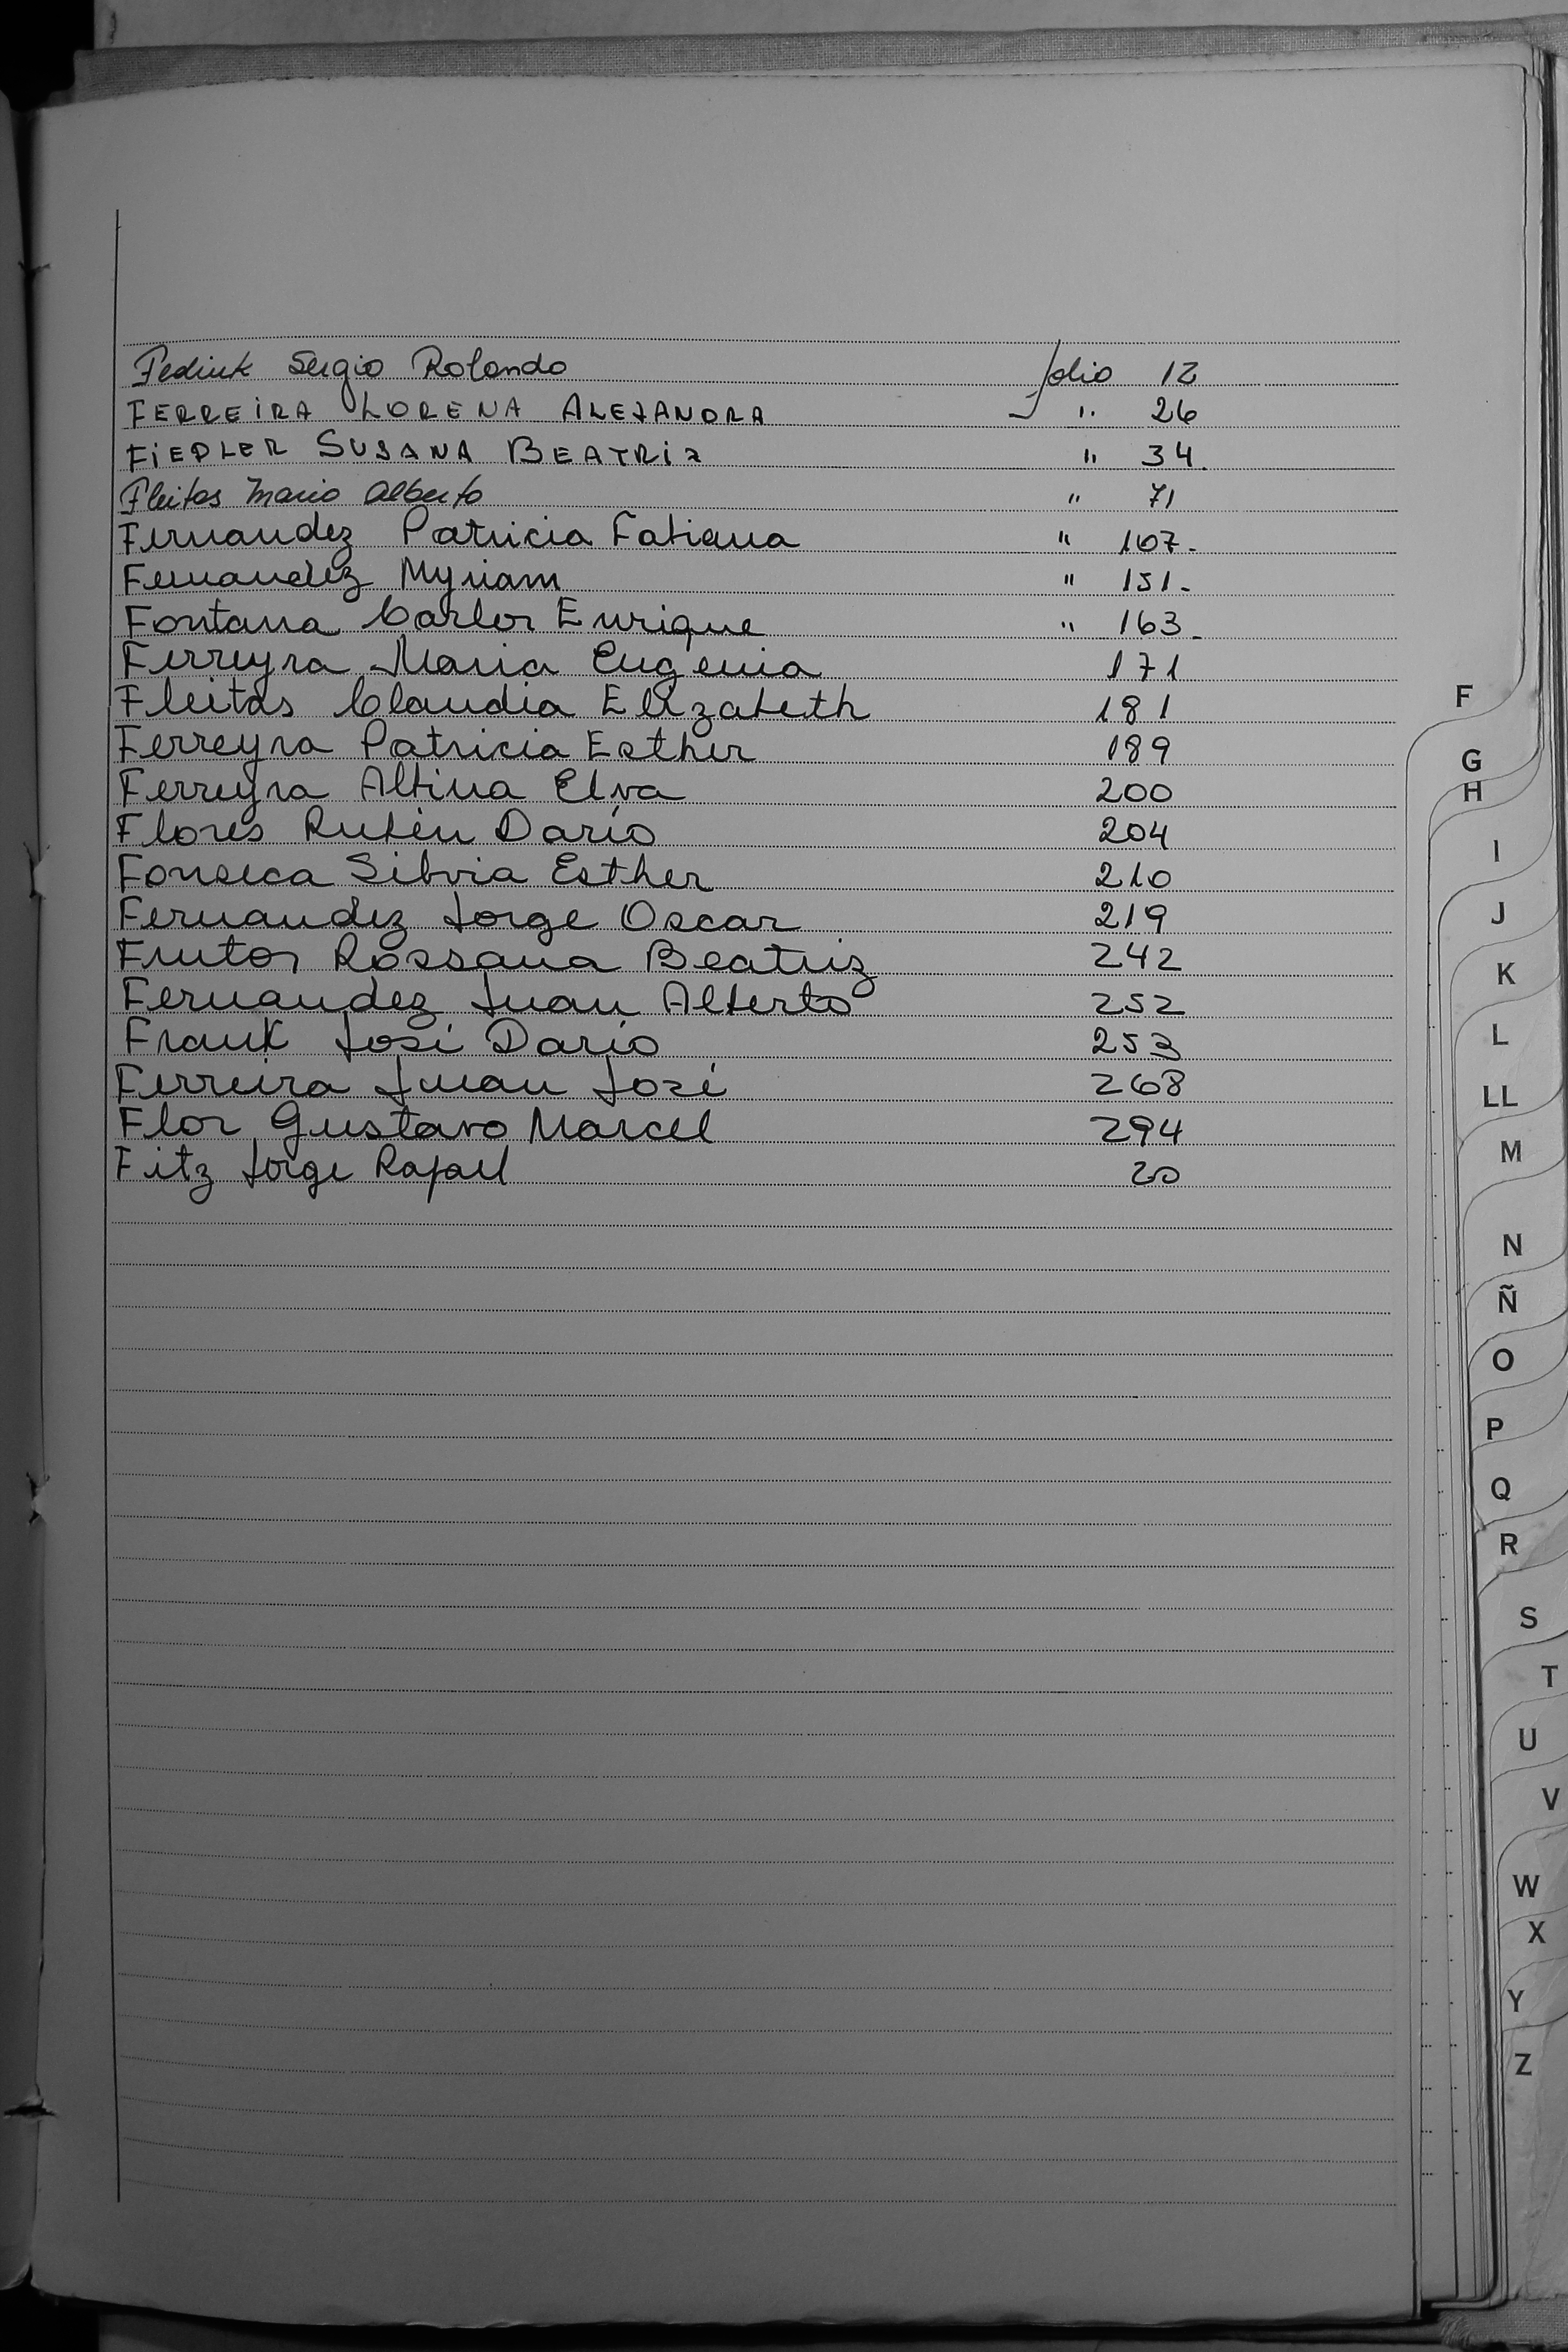 Fediuk Sergio Rolando folio 12
FERREIRA LORENA ALEJANDRA " 26
FIEDLER SUSANA BEATRIZ " 34.
Fleitas Mario Alberto " 71
Fernandez Patricia Fatiana " 107.
Fernandez Myriam " 151.
Fontana Carlos Enrique " 163.
Ferreyra Maria Eugenia 171
Fleitas Claudia Elizabeth 181
Ferreyra Patricia Esther 189
Ferreyra Albina Elva 200
Flores Rubén Darío 204
Fonseca Silvia Esther 210
Fernandez Jorge Oscar 219
Frutos Rossana Beatriz 242
Fernandez Juan Alberto 252
Frank José Darío 253
Ferreira Juan José 268
Flor Gustavo Marcel 294
Fitz Jorge Rafael 20
F
G
H
I
J
K
L
LL
M
N
Ñ
O
P
Q
R
S
T
U
V
W
X
Y
Z